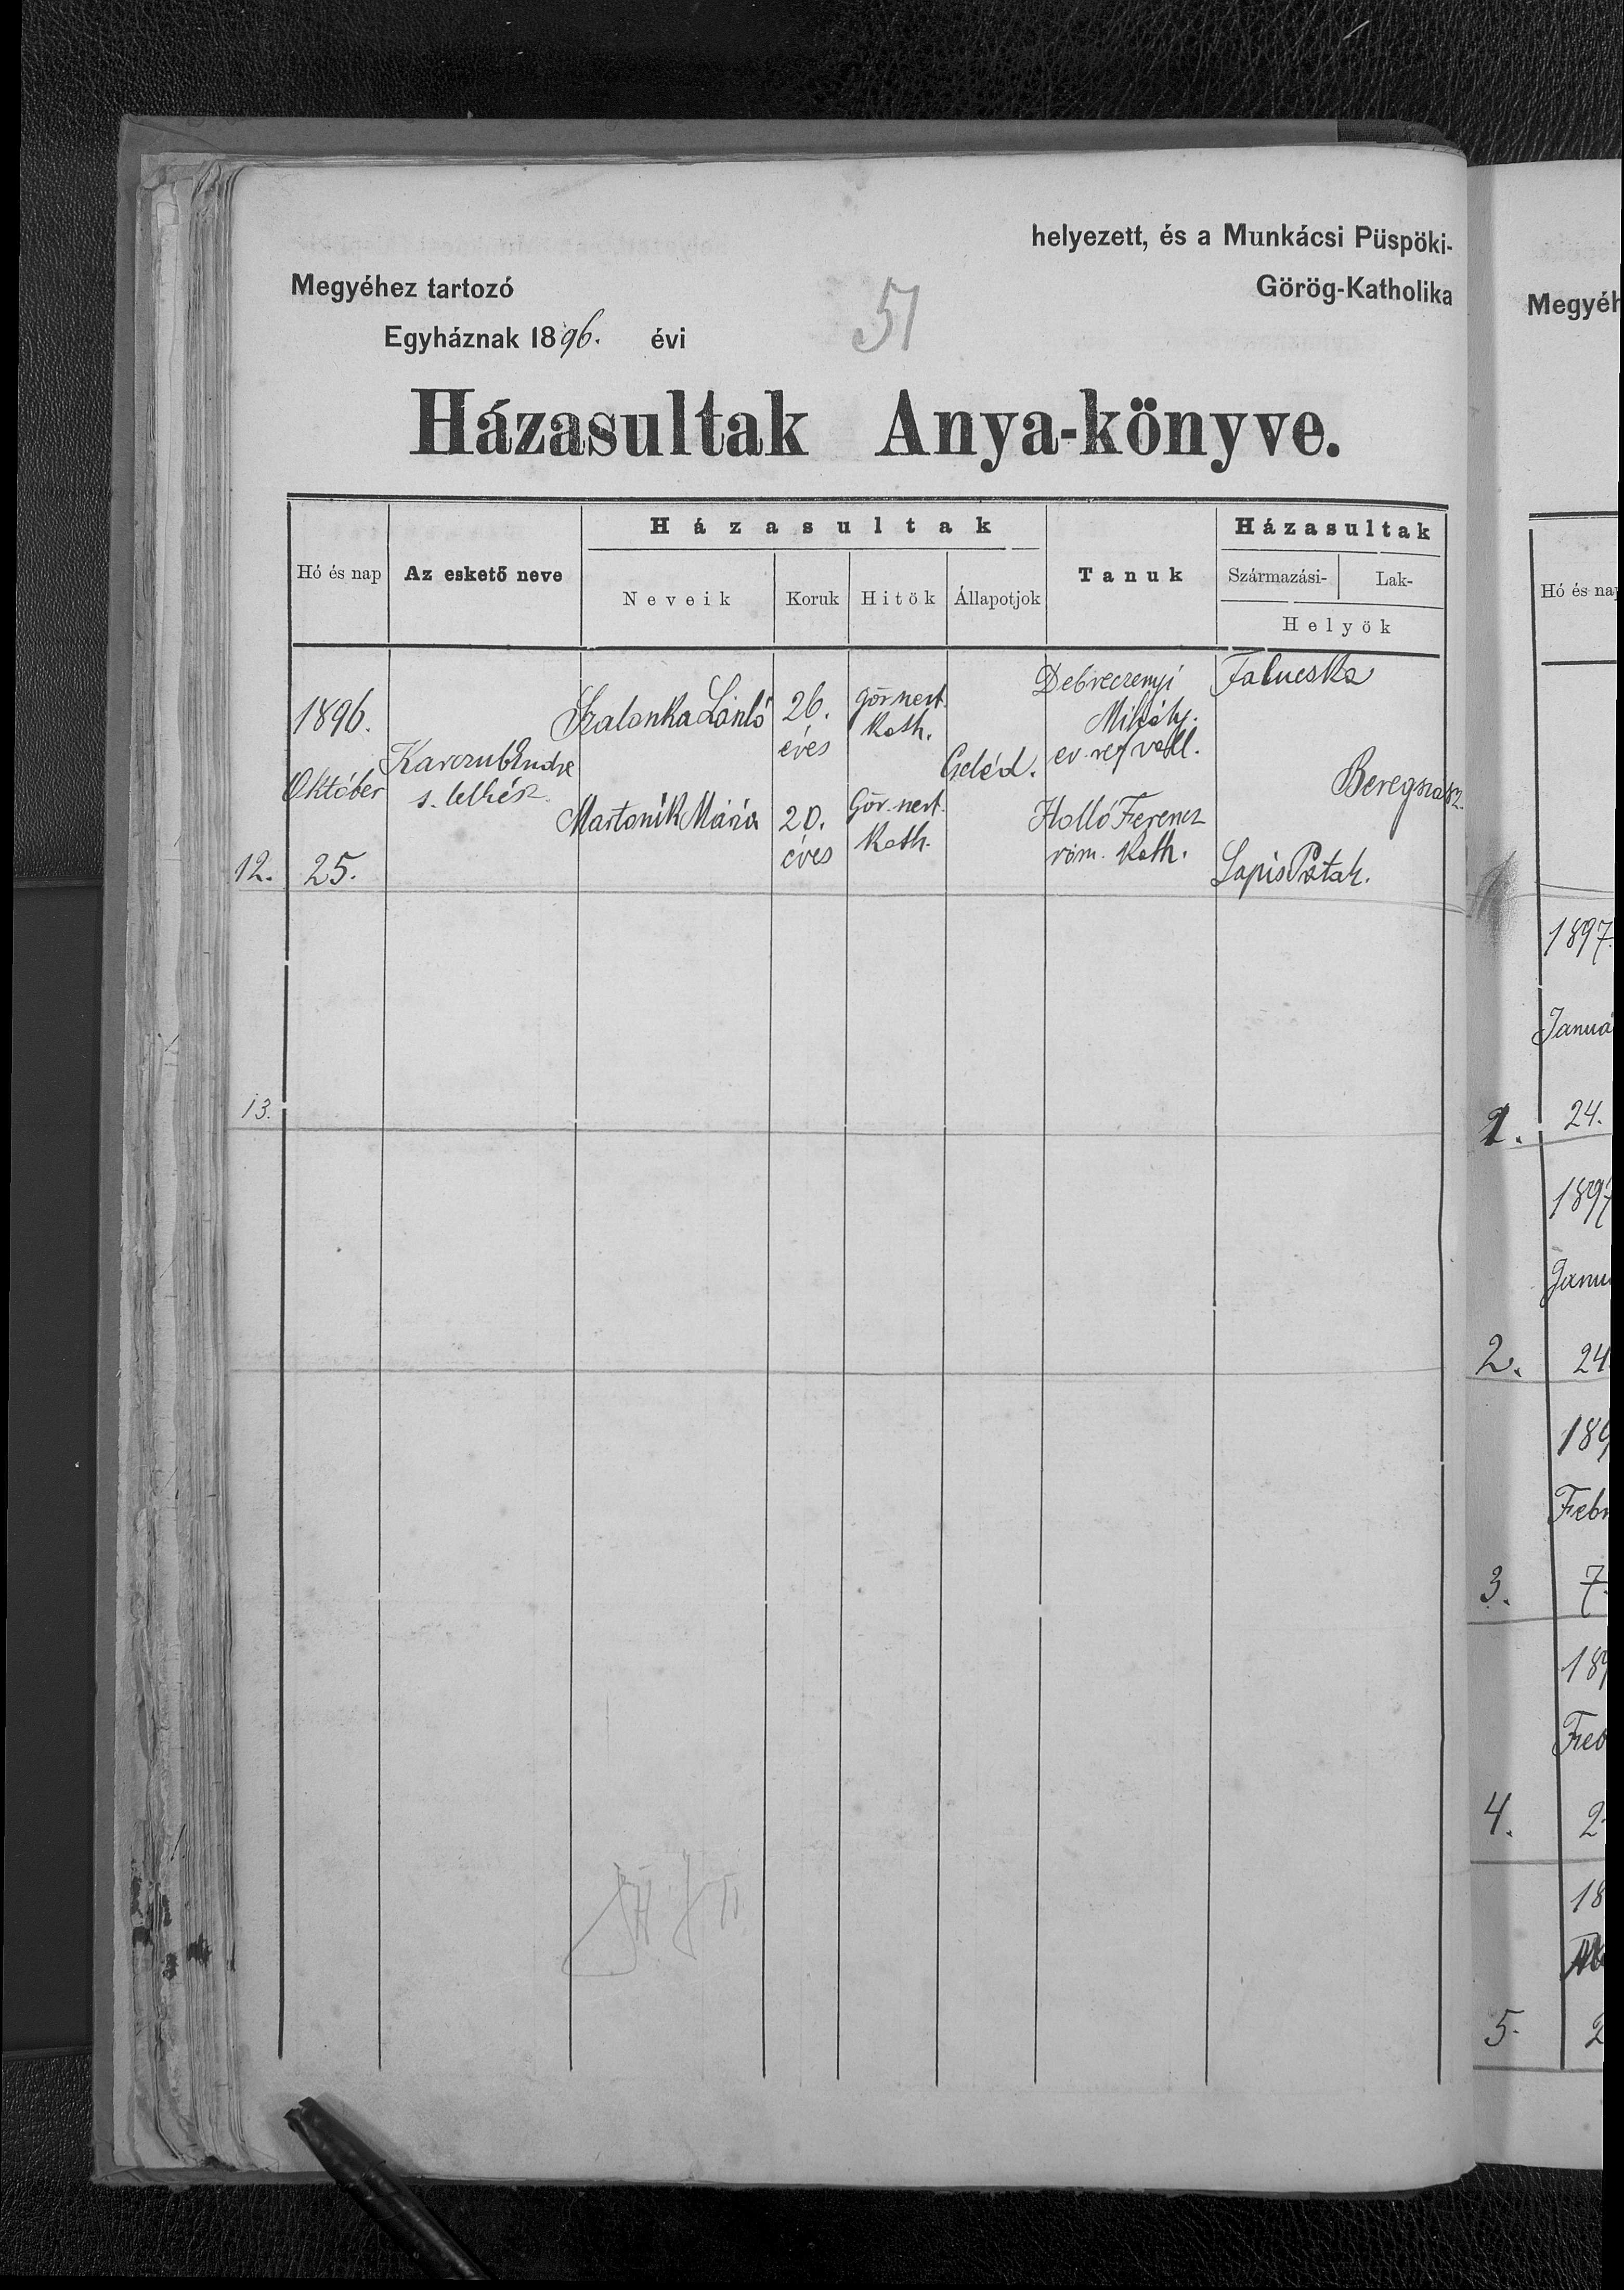 helyezett, és a Munkácsi Püspöki-
Megyéhez tartozó Görög-Katholika
Egyháznak 1896. évi
51
Házasultak Anya-könyve.
Hó és nap
Az eskető neve
Házasultak
Neveik
Koruk
Hitök
Állapotjok
Tanuk
Házasultak
Származási-
Lak-
Helyök
1896.
Október
12. 25.
Endre
s. lelkész
Szalonka
26.
éves
gör. kath.
Martonik Mária
20.
éves
Gör. kath.
Debreczenyi
Mihály.
ev. ref vall.
Holló Ferencz
róm. Kath.
Falucska
Beregszász.
Patak.
13.
Megyéh
Hó és na
1897
Januá
1. 24.
1897
Janu
2. 24
189
Febr
3. 7.
189
Feb
4. 2
18
5. 2